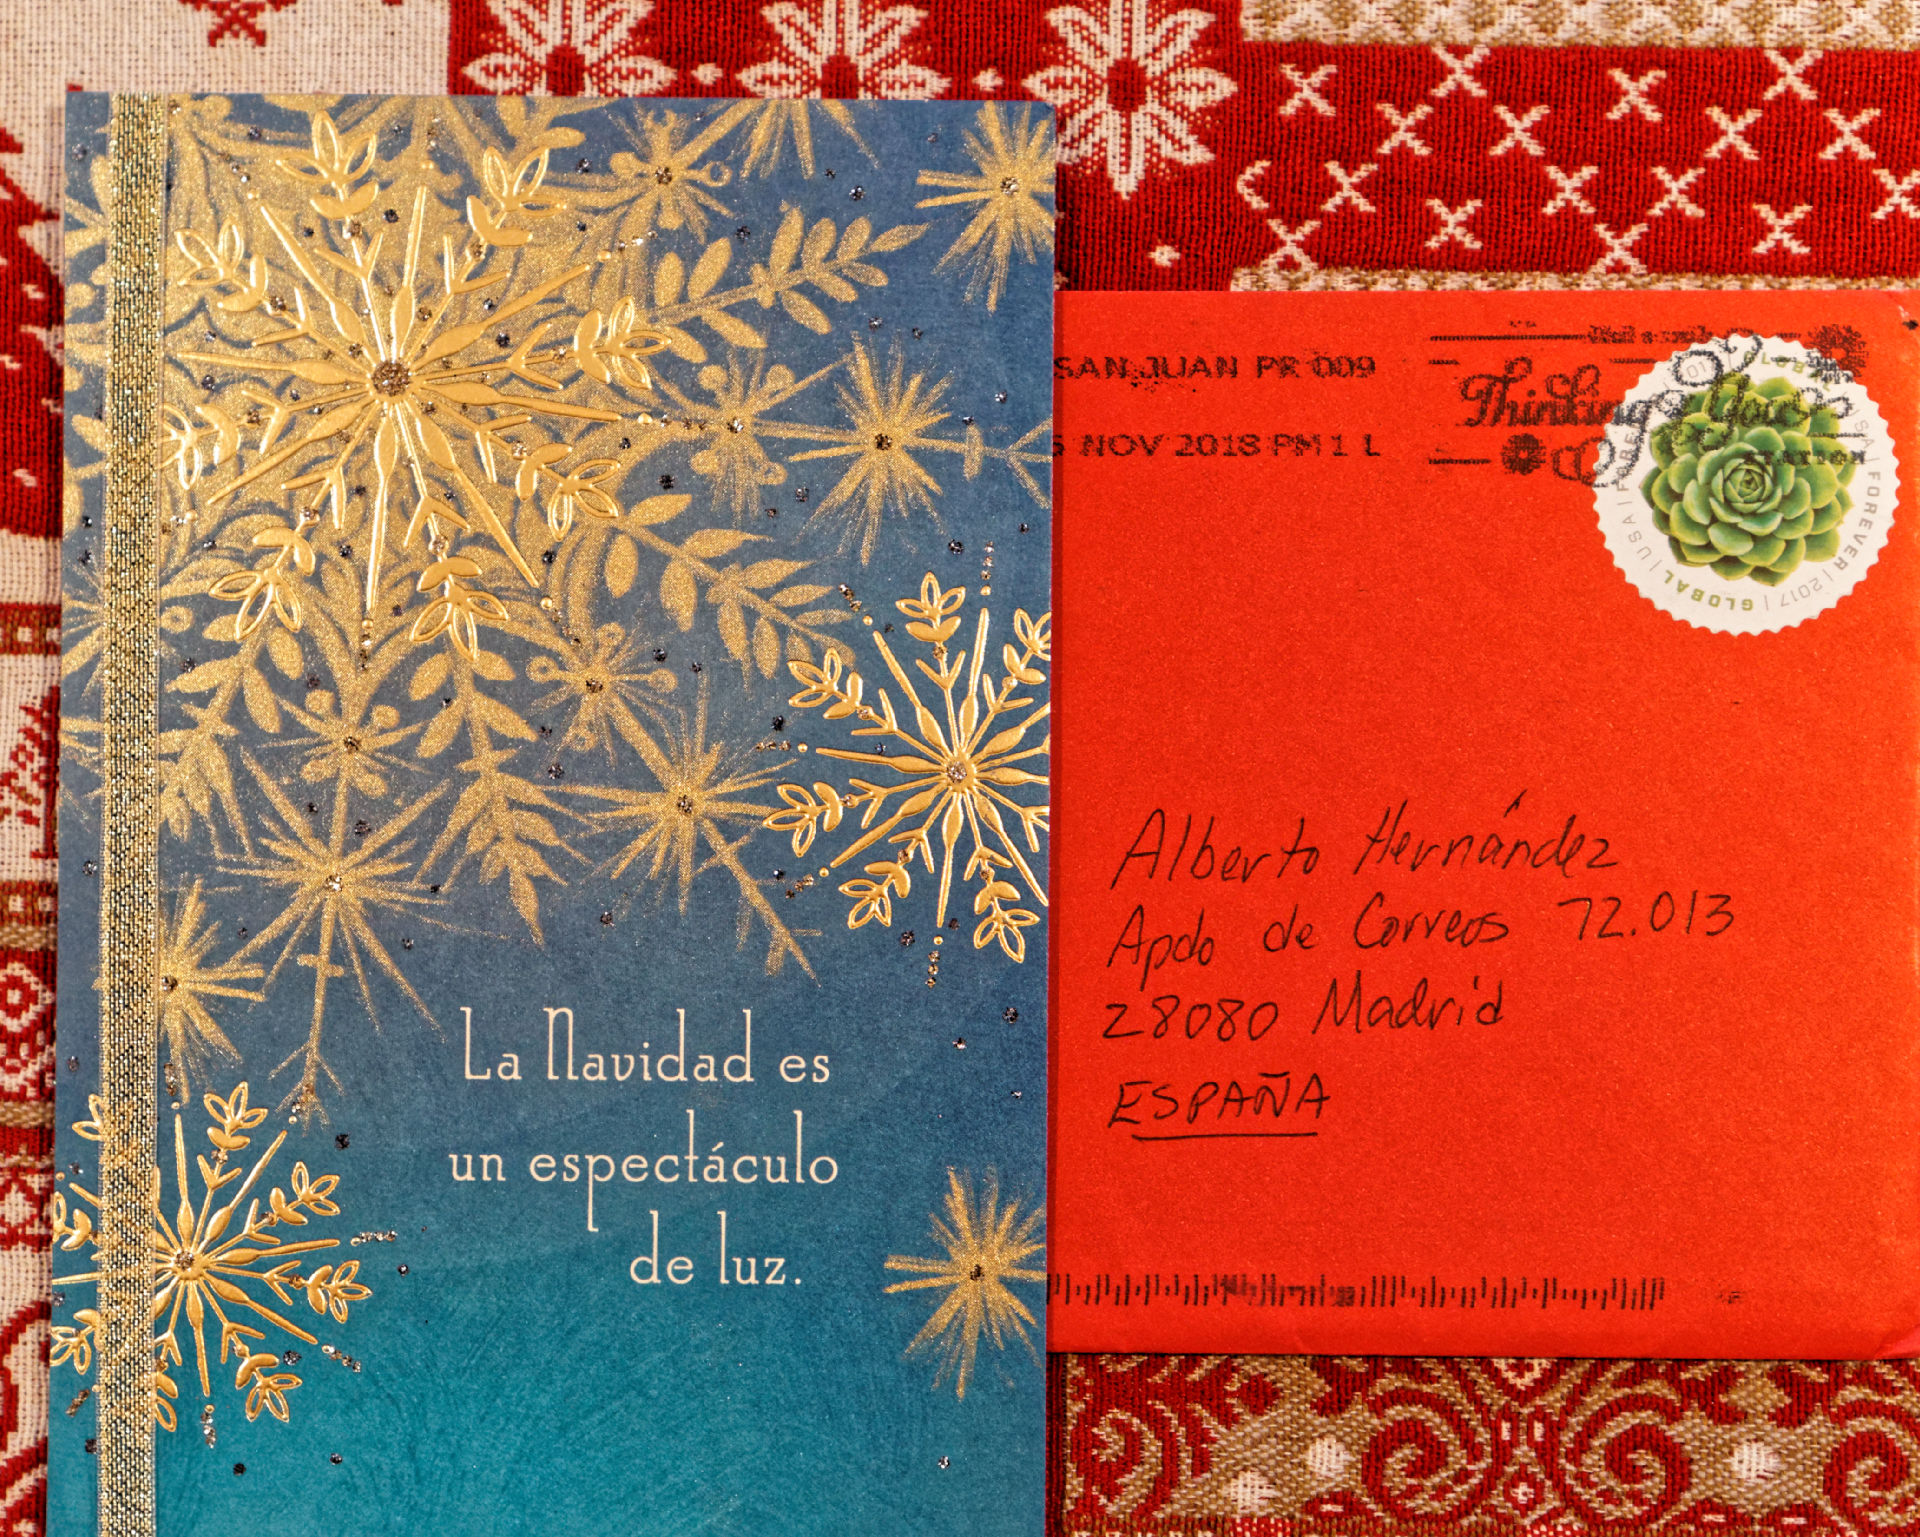 La Navidad es
un espectáculo
de luz.
SAN JUAN PR 009
NOV 2018 PM 1 L
Thinking of You
STATION
USA | FOREVER | 2017 | GLOBAL | USA |
Alberto Hernández
Apdo de Correos 72.013
28080 Madrid
ESPAÑA